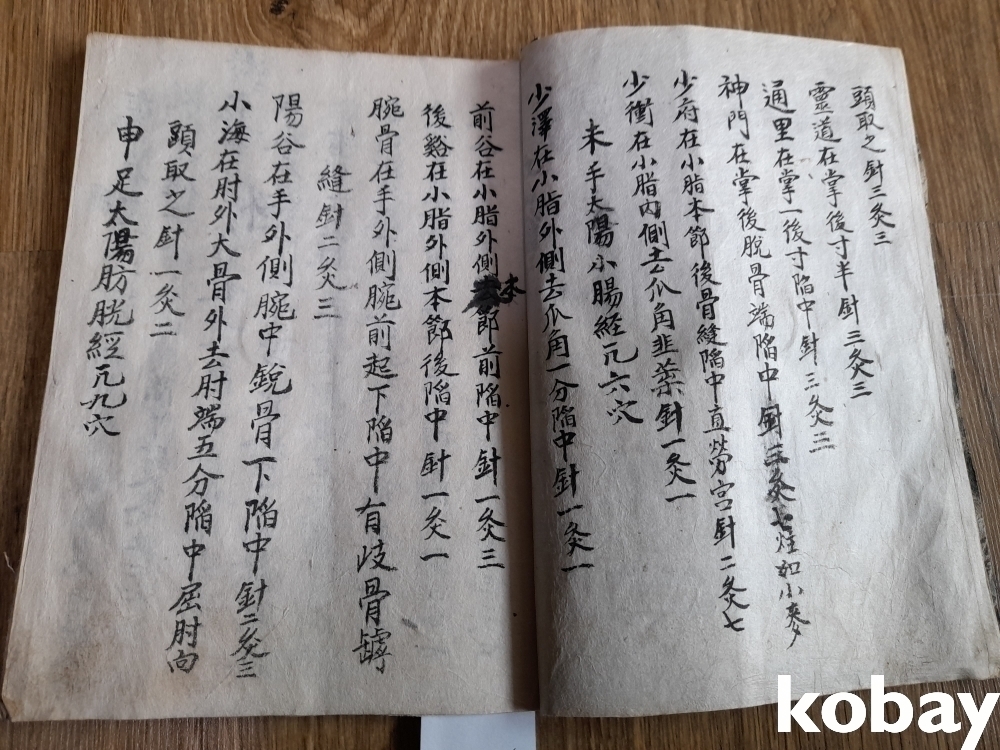 頭取之針三灸三
靈道在掌後寸半針三灸三
通里在掌一後寸陷中針三灸三
神門在掌後脫骨端陷中針三灸七炷如小麥
少府在小脂本節後骨縫陷中直勞宮針二灸七
少衝在小脂內側去爪角韭葉針一灸一
未手太陽小腸経凡六穴
少澤在小脂外側去爪角一分陷中針一灸一
前谷在小脂外側本節前陷中針一灸三
後谿在小脂外側本節後陷中針一灸一
腕骨在手外側腕前起下陷中有歧骨罅
縫針二灸三
陽谷在手外側腕中銳骨下陷中針二灸三
小海在肘外大骨外去肘端五分陷中屈肘向
頭取之針一灸二
申足太陽肪胱經凡九穴
kobay